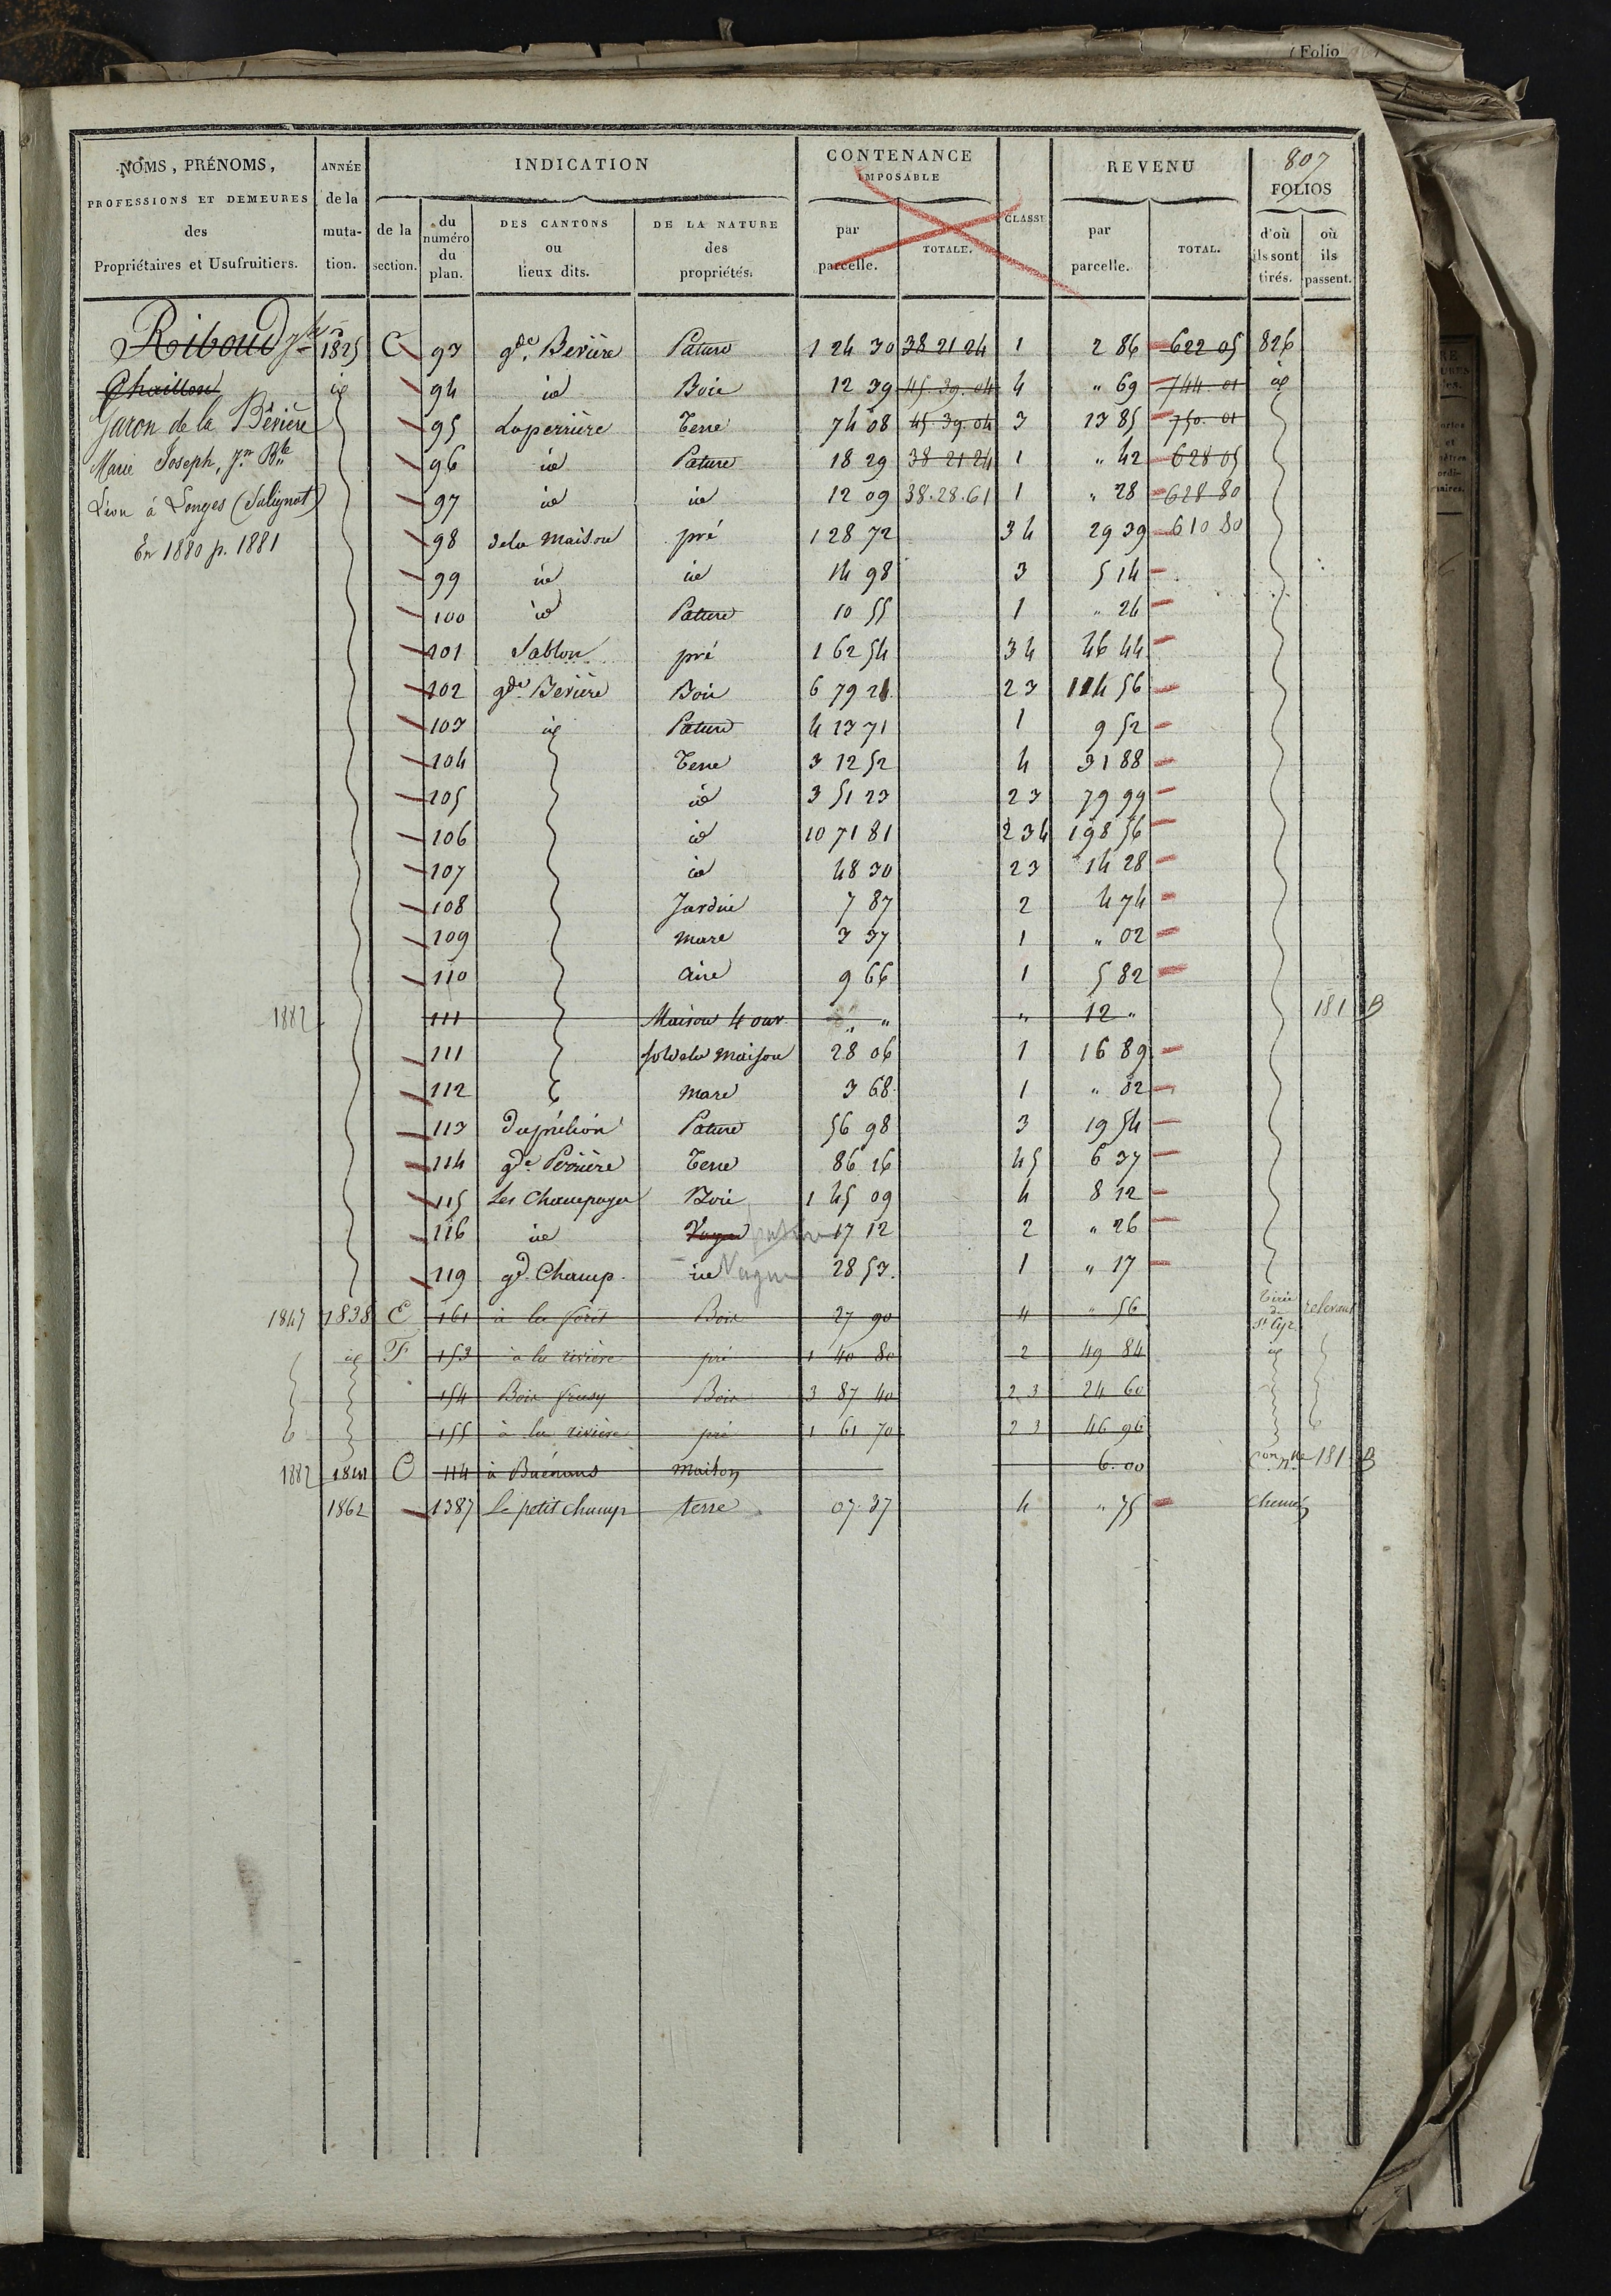 ( Folio
807
NOMS, PRÉNOMS,
PROFESSIONS ET DEMEURES
des
Propriétaires et Usufruitiers.
ANNÉE
de la
muta-
tion.
INDICATION
de la
section.
du
numéro
du
plan.
DES CANTONS
ou
lieux dits.
DE LA NATURE
des
propriétés.
CONTENANCE
IMPOSABLE
par
parcelle.
TOTALE.
CLASSE
REVENU
par
parcelle.
TOTAL.
FOLIOS
d'où
ils sont
tirés.
où
ils
passent.
Riboud
Chaillon
Garon de la Bévière
Marie Joseph, Jn Bte
Léon à Longes (Julignat)
En 1880 p. 1881
1825 C 93 gde Bevière Pature 1 24 30 38 21 24 1 2 86 622 05 826
id 94 id Bois 12 39 45.39.04 4 " 69 744.01 id
95 Laperrière Terre 74 08 45 39.04 3 13 85 750.01
96 id Pature 18 29 38 21 24 1 " 42 628 05
97 id id 12 09 38.28.61 1 " 28 628 80
98 dela Maison pré 1 28 72 3 4 29 39 610 80
99 id id 14 98 3 5 14
100 id Pature 10 55 1 " 24
101 Sablon pré 1 62 54 3 4 46 44
102 gde Bevière Bois 6 79 21 2 3 114 56
103 id Pature 4 13 71 1 9 52
104 Terre 3 12 52 4 31 88
105 id 3 51 23 2 3 79 99
106 id 10 71 81 2 3 4 198 56
107 id 48 30 2 3 14 28
108 Jardin 7 87 2 4 74
109 mare 3 37 1 " 02
110 Aire 9 66 1 5 82
1882 111 Maison 4 ouv. " " " 12 " 181 B
111 sol dela maison 28 06 1 16 89
112 mare 3 68 1 " 02
113 Pature 56 98 3 19 54
114 gde Perrière Terre 86 26 4 5 6 37
115 Les Champagne Bois 1 45 09 4 8 12
116 id Vague pature 17 12 2 " 26
119 gd. Champ. id Vague 28 53. 1 " 17
1847 1838 E 161 à la forêt Bois 27 90 4 " 56 Tirée de St Cyr
id F 153 à la rivière pré 1 40 80 2 49 84 id
154 Bois Bois 3 87 40 2 3 24 60
155 à la rivière pré 1 61 70 2 3 46 96
1882 1841 C 114 à Buénans Maison 6.00 Con nlle 181 B
1862 1387 Le petit champ terre 07.37 4 " 75 Chemin